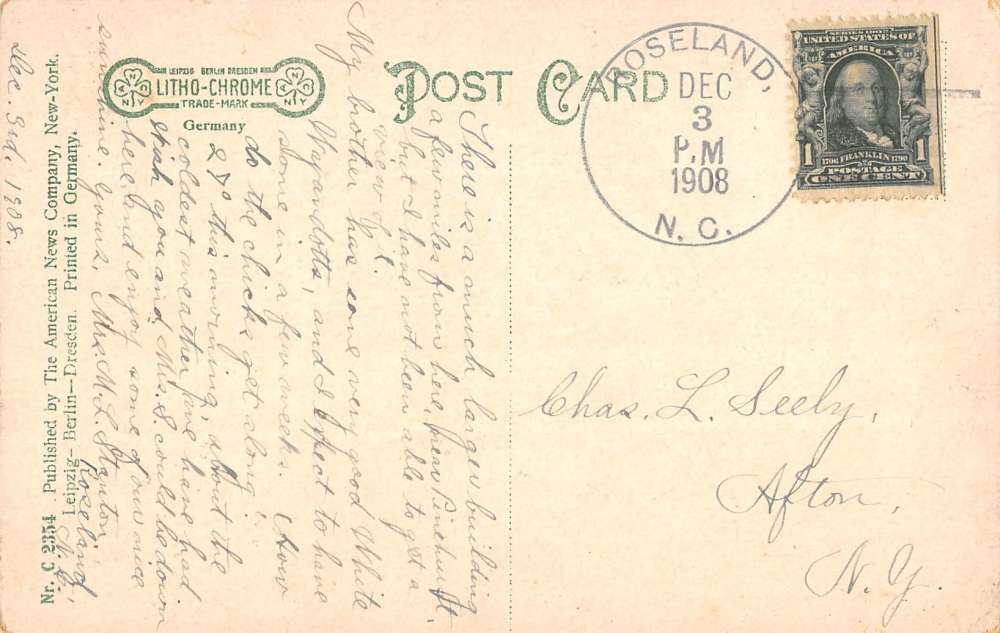 POST CARD
LEIPZIG BERLIN DRESDEN
LITHO-CHROME
TRADE-MARK
Germany
ROSELAND,
DEC
3
P.M
1908
N. C.
SERIES 1902
UNITED STATES OF
AMERICA
1 1
1706 FRANKLIN 1790
POSTAGE
ONE CENT
Chas. L. Seely,
Afton,
N. Y.
There is a much larger building
a few miles from here, near Pinehurst
but I have not been able to get a
view of it.
My brother has some very good White
Wyandotts, and I expect to have
some in a few weeks. How
do the chicks get along?
this morning, about the
coldest weather we have had
wish you and Mrs. S. could be down
here and enjoy some of our nice
sunshine. Yours, Mrs. M. L. Stanton
Roseland,
N. C.
Dec. 3rd. 1908.
Nr. C 2354 Published by The American News Company, New-York.
Leipzig—Berlin—Dresden. Printed in Germany.